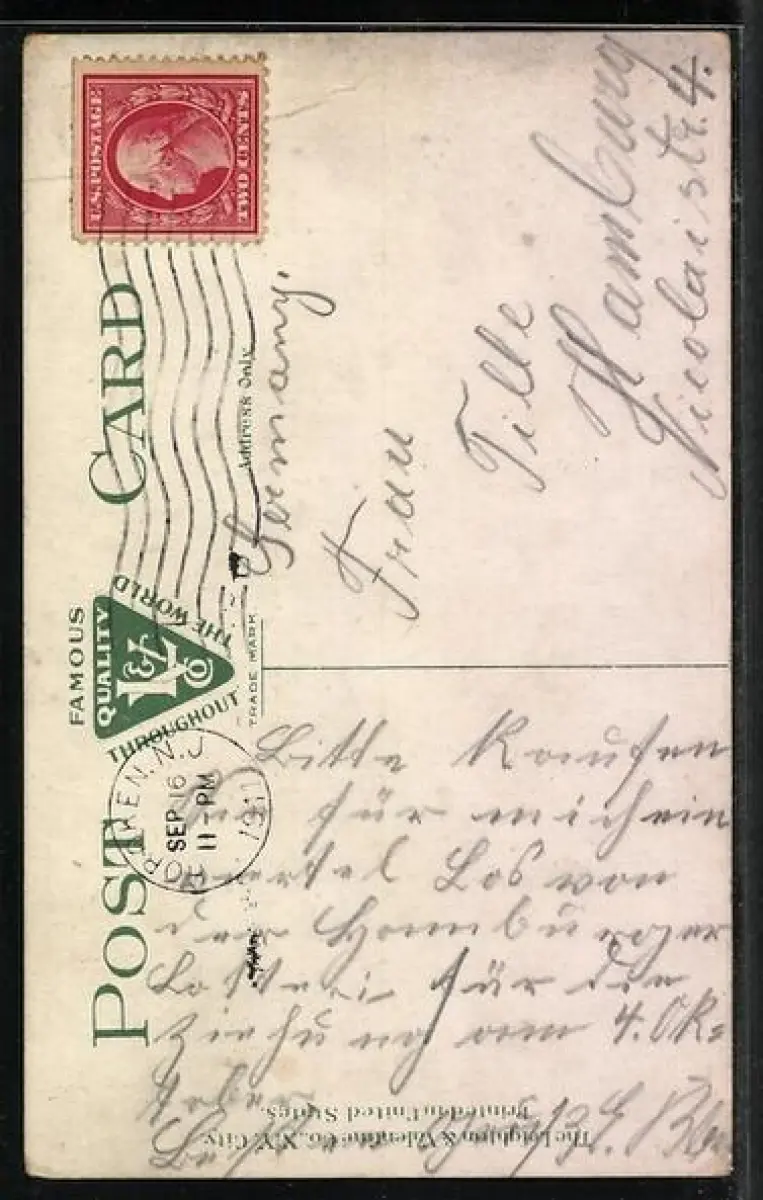 POST CARD
FAMOUS
QUALITY
L&V Co
THROUGHOUT THE WORLD
TRADE MARK
U.S. POSTAGE
TWO CENTS
HOBOKEN, N.J.
SEP 16
11-PM
1911
Address Only
Germany.
Frau
Tille
Hamburg
Nicolaistr. 4.
Bitte Kaufen
Sie für mich ein
viertel Los von
der Hamburger
Lotterie für die
Ziehung vom 4. Ok-
tober
Besten Gruß
The Leighton & Valentine Co., N.Y. City.
Printed in United States.